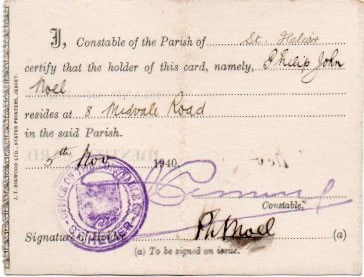 I, Constable of the Parish of St. Helier
certify that the holder of this card, namely, Philip John
Noel
resides at 8 Midvale Road
in the said Parish.
5th Nov 1940.
Constable.
Signature of Holder Ph Noel (a)
(a) To be signed on issue.
J. T. BIGWOOD LTD., STATES PRINTERS, JERSEY.
ST. HELIER